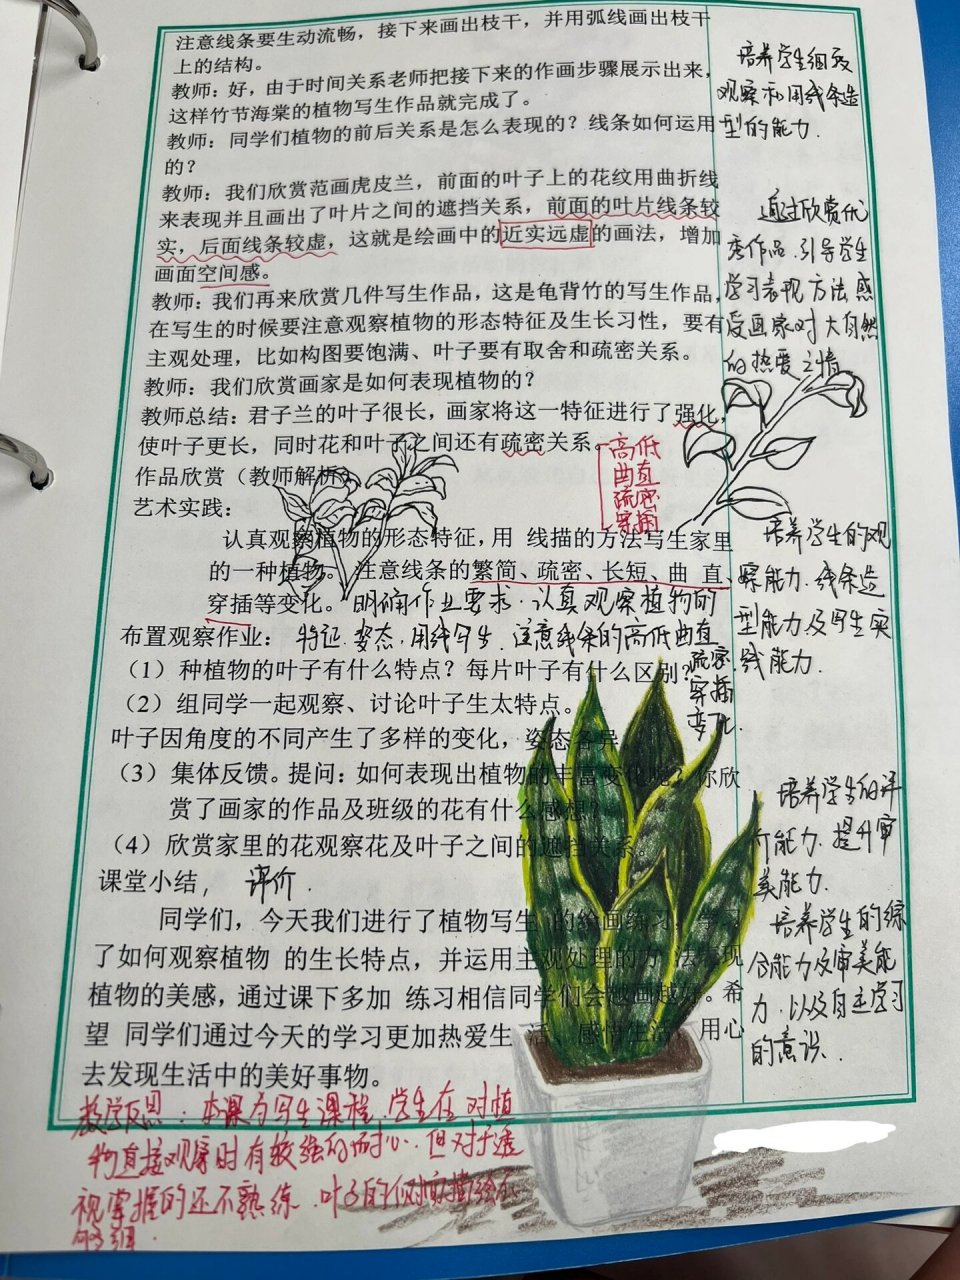 注意线条要生动流畅，接下来画出枝干，并用弧线画出枝干
上的结构。
教师：好，由于时间关系老师把接下来的作画步骤展示出来，
这样竹节海棠的植物写生作品就完成了。
教师：同学们植物的前后关系是怎么表现的？线条如何运用
的？
教师：我们欣赏范画虎皮兰，前面的叶子上的花纹用曲折线
来表现并且画出了叶片之间的遮挡关系，前面的叶片线条较
实，后面线条较虚，这就是绘画中的近实远虚的画法，增加
画面空间感。
教师：我们再来欣赏几件写生作品，这是龟背竹的写生作品，
在写生的时候要注意观察植物的形态特征及生长习性，要有
主观处理，比如构图要饱满、叶子要有取舍和疏密关系。
教师：我们欣赏画家是如何表现植物的？
教师总结：君子兰的叶子很长，画家将这一特征进行了强化，
使叶子更长，同时花和叶子之间还有疏密关系。
高低
曲直
疏密
穿插
作品欣赏（教师解析）
艺术实践：
认真观察植物的形态特征，用 线描的方法写生家里
的一种植物。 注意线条的繁简、疏密、长短、曲 直、
穿插等变化。 明确作业要求.认真观察植物的
布置观察作业： 特征.姿态.用线写生.注意线条的高低曲直
疏密
穿插
变化.
（1）种植物的叶子有什么特点？每片叶子有什么区别？
（2）组同学一起观察、讨论叶子生太特点。
叶子因角度的不同产生了多样的变化，姿态各异
（3）集体反馈。提问：如何表现出植物的丰富变化呢？你欣
赏了画家的作品及班级的花有什么感想？
（4）欣赏家里的花观察花及叶子之间的遮挡关系。
课堂小结， 评价.
同学们，今天我们进行了植物写生 的绘画练习，学习
了如何观察植物 的生长特点，并运用主观处理的方 法表现
植物的美感，通过课下多加 练习相信同学们会越画越好。希
望 同学们通过今天的学习更加热爱生 活、感悟生活，用心
去发现生活中的美好事物。
教学反思.本课为写生课程.学生在对植
物直接观察时有较强的耐心.但对于透
视掌握的还不熟练.叶子的
培养学生细致
观察和用线条造
型的能力.
通过欣赏优
秀作品.引导学生
学习表现方法感
受画家对大自然
的热爱之情
培养学生的观
察能力.线条造
型能力及写生实
践能力.
培养学生的评
价能力.提升审
美能力.
培养学生的综
合能力及审美能
力.以及自主学习
的意识.